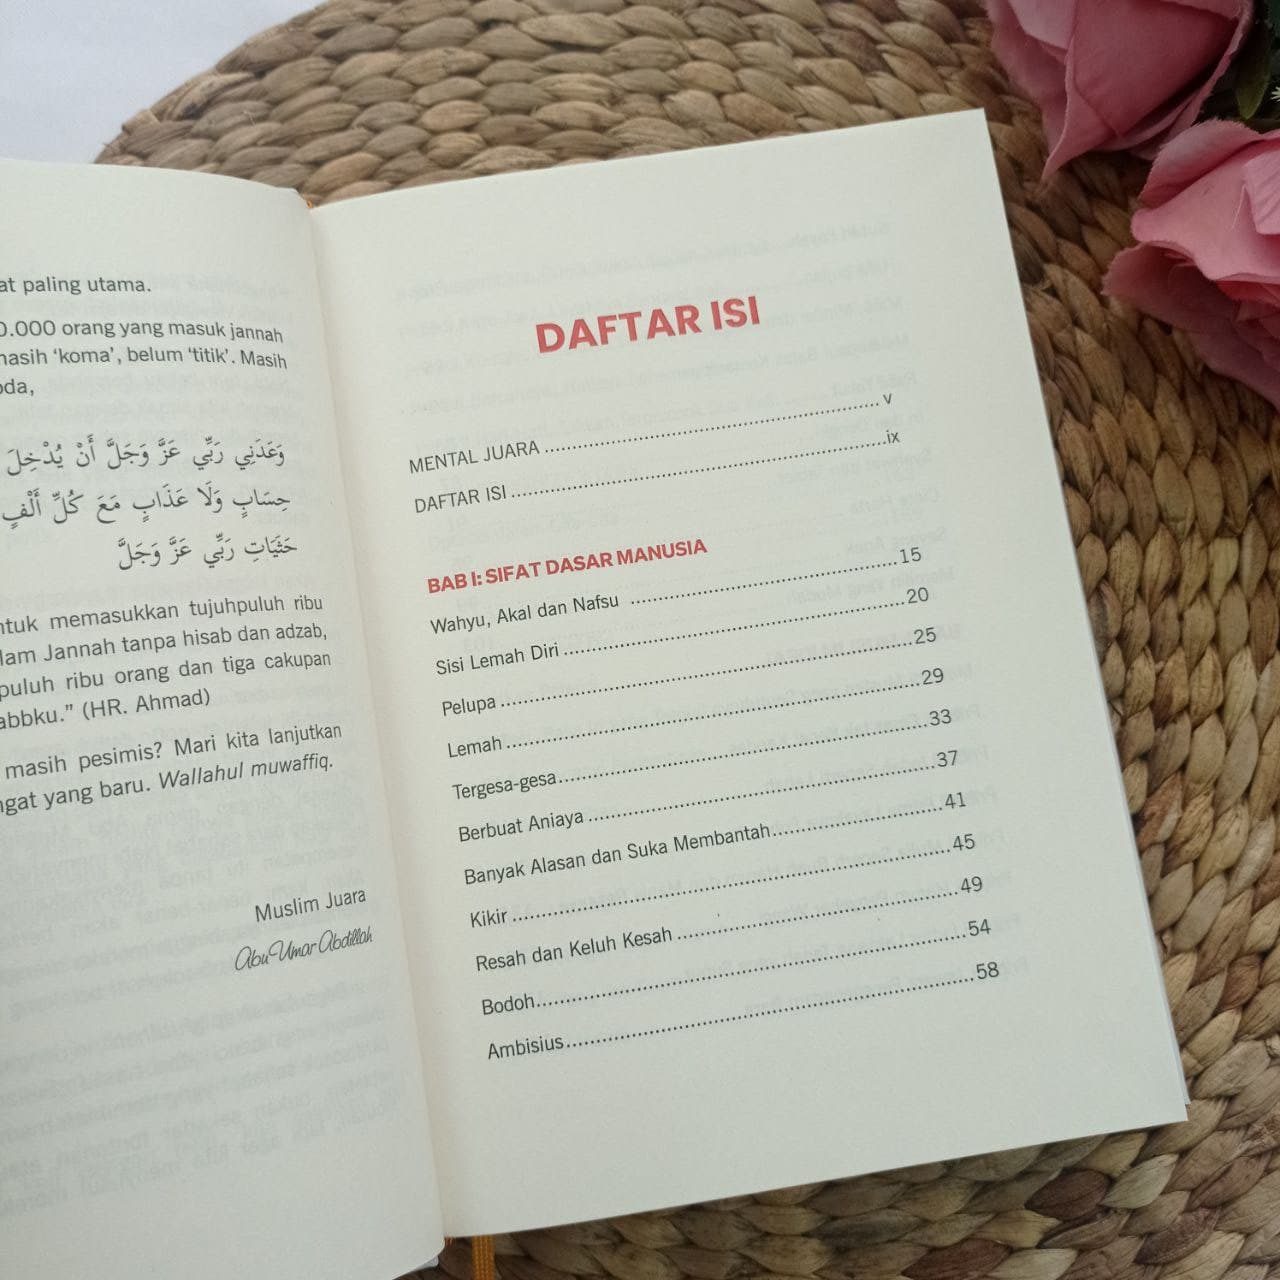 at paling utama.
0.000 orang yang masuk jannah
masih ‘koma’, belum ‘titik’. Masih
oda,
وَعَدَنِي رَبِّي عَزَّ وَجَلَّ أَنْ يُدْخِلَ
حِسَابٍ وَلَا عَذَابٍ مَعَ كُلِّ أَلْفٍ
حَثَيَاتِ رَبِّي عَزَّ وَجَلَّ
ntuk memasukkan tujuhpuluh ribu
lam Jannah tanpa hisab dan adzab,
puluh ribu orang dan tiga cakupan
abbku.” (HR. Ahmad)
masih pesimis? Mari kita lanjutkan
ngat yang baru. Wallahul muwaffiq.
Muslim Juara
Abu Umar Abdillah
DAFTAR ISI
MENTAL JUARA ........ v
DAFTAR ISI ........ ix
BAB I: SIFAT DASAR MANUSIA
Wahyu, Akal dan Nafsu ........ 15
Sisi Lemah Diri ........ 20
Pelupa ........ 25
Lemah ........ 29
Tergesa-gesa ........ 33
Berbuat Aniaya ........ 37
Banyak Alasan dan Suka Membantah ........ 41
Kikir ........ 45
Resah dan Keluh Kesah ........ 49
Bodoh ........ 54
Ambisius ........ 58